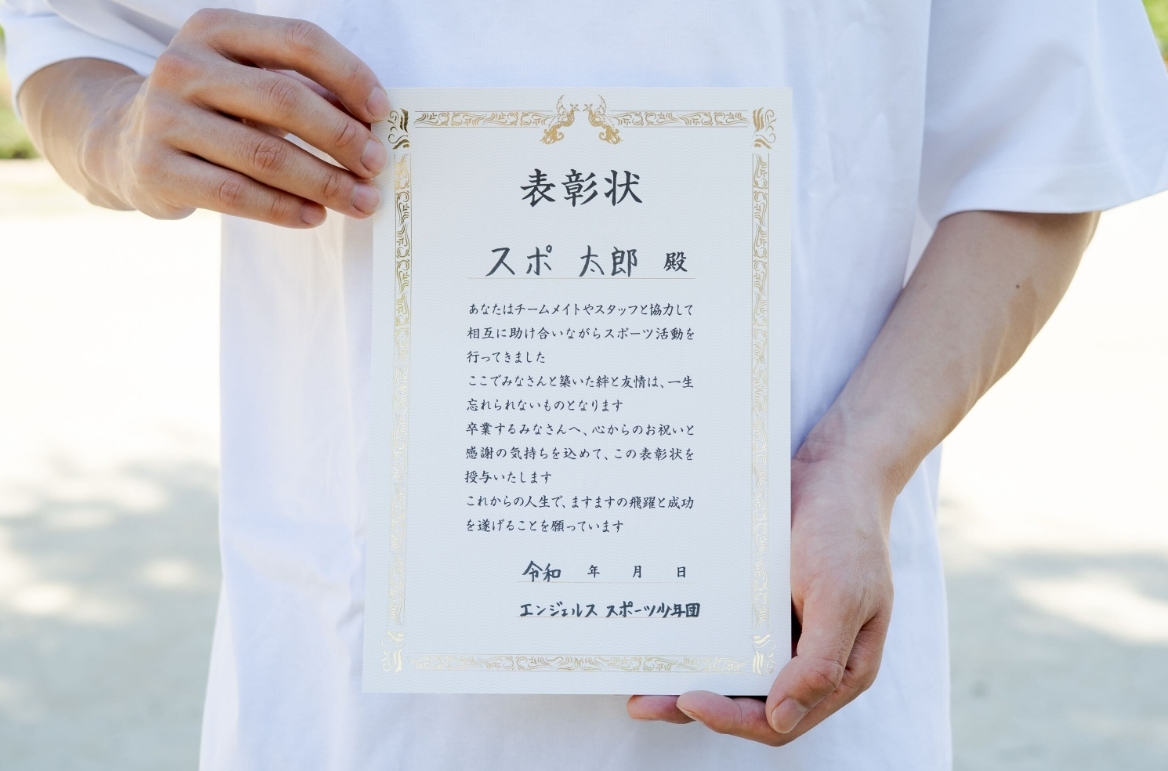 表彰状
スポ 太郎 殿
あなたはチームメイトやスタッフと協力して
相互に助け合いながらスポーツ活動を
行ってきました
ここでみなさんと築いた絆と友情は、一生
忘れられないものとなります
卒業するみなさんへ、心からのお祝いと
感謝の気持ちを込めて、この表彰状を
授与いたします
これからの人生で、ますますの飛躍と成功
を遂げることを願っています
令和 年 月 日
エンジェルス スポーツ少年団